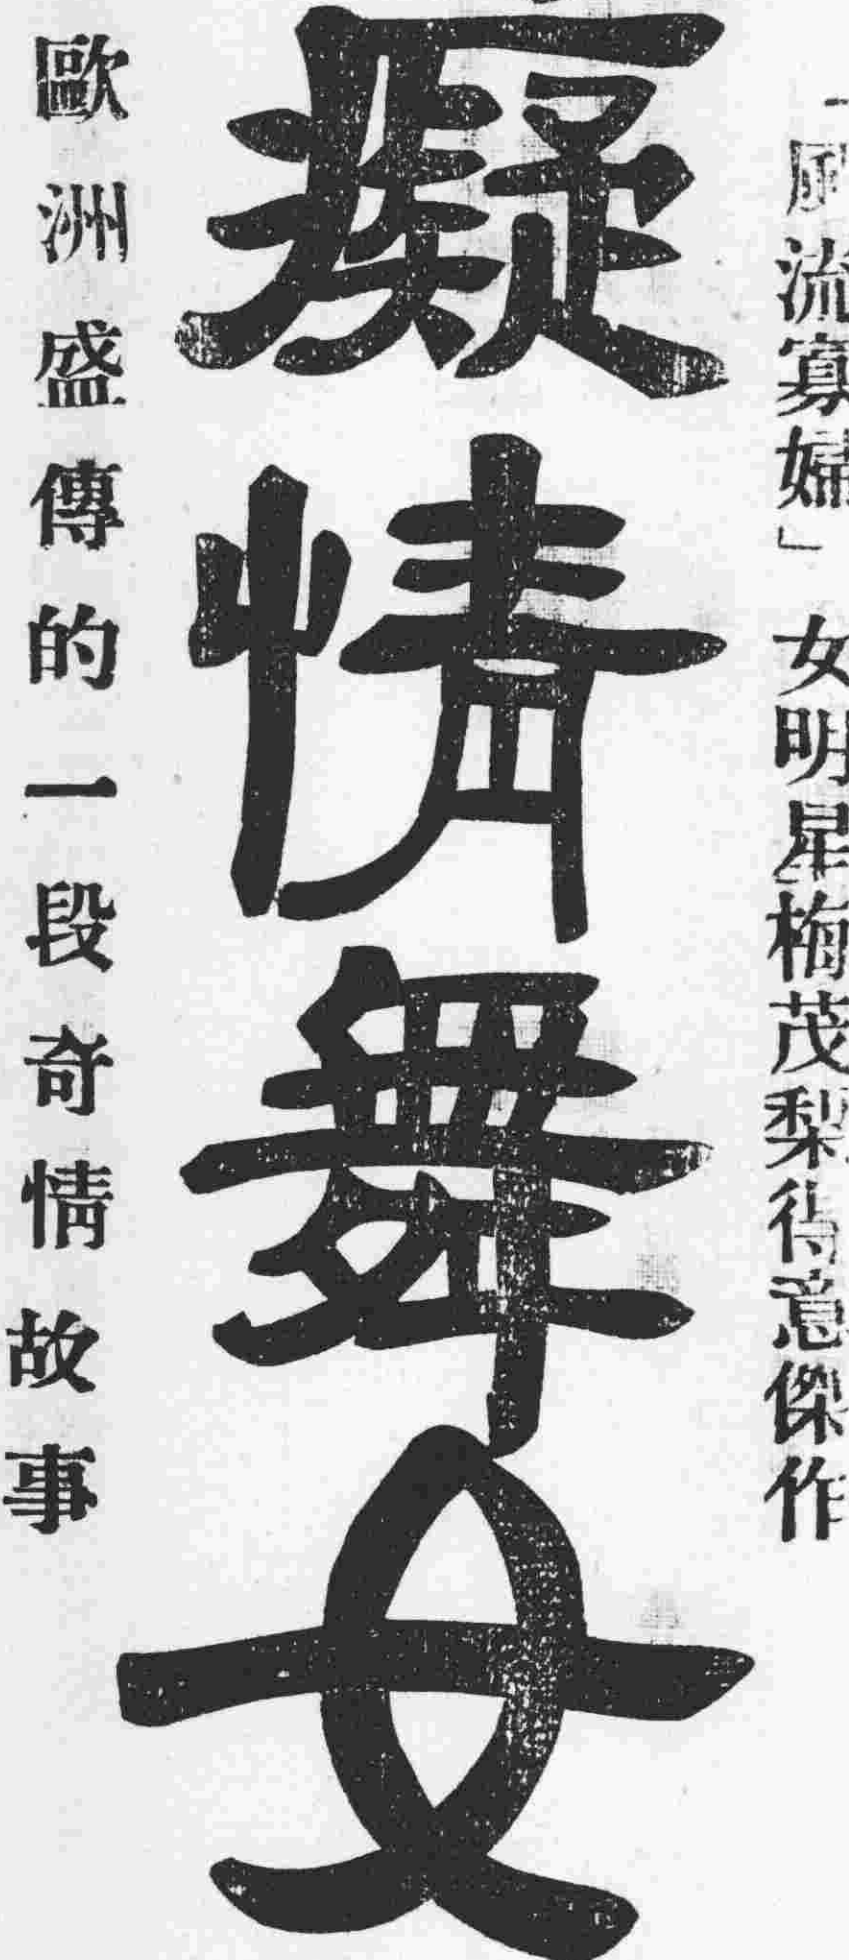 「風流寡婦」女明星梅茂梨得意傑作
癡情舞女
歐洲盛傳的一段奇情故事